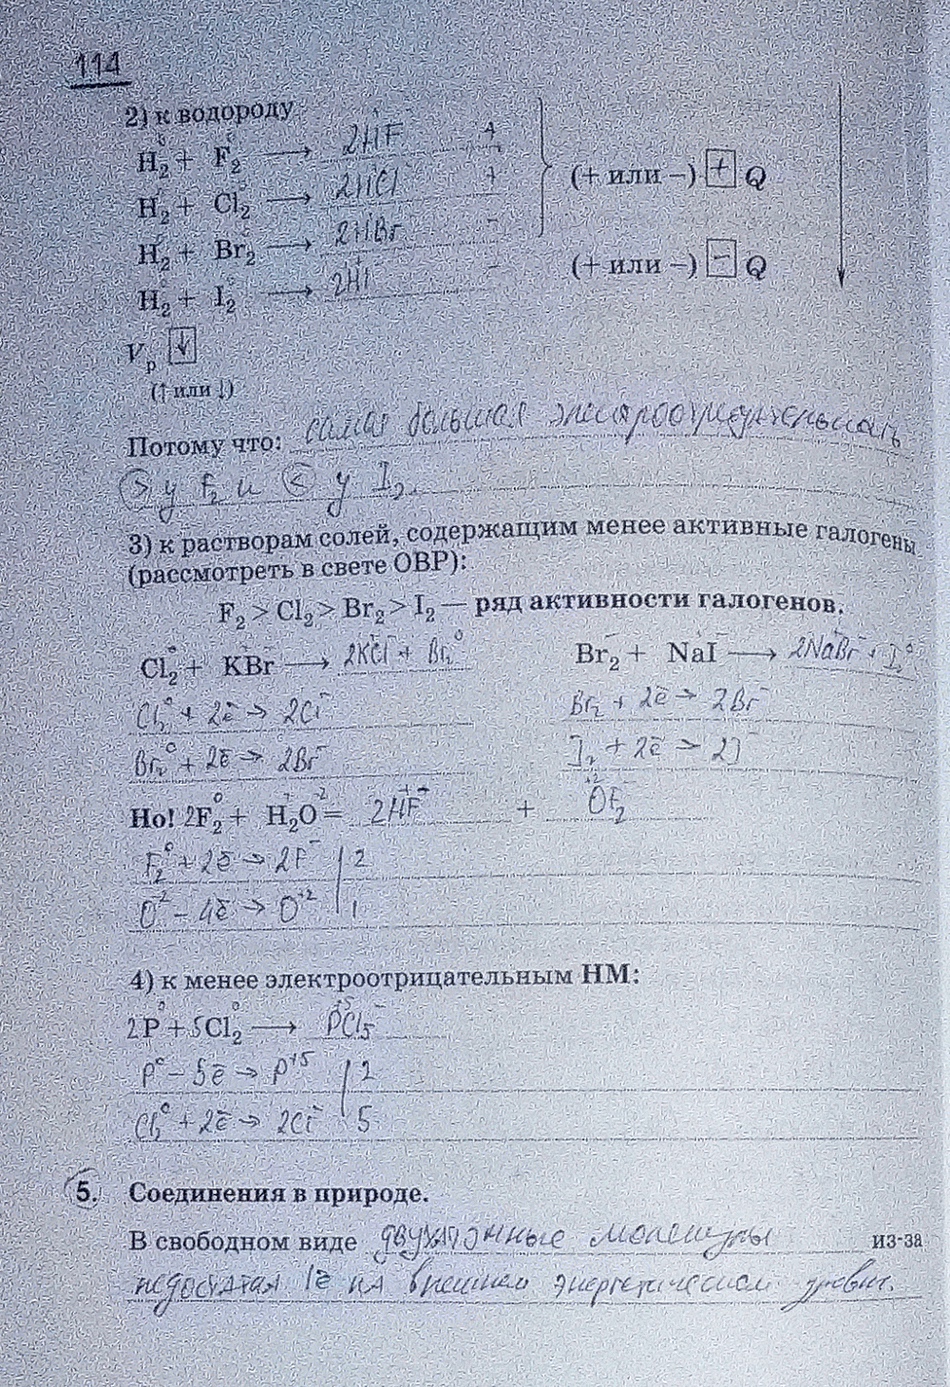 114
2) к водороду
H₂⁰ + F₂⁰ → 2HF +
H₂⁰ + Cl₂⁰ → 2HCl +
(+ или –) + Q
H₂⁰ + Br₂⁰ → 2HBr –
H₂⁰ + I₂⁰ → 2HI –
(+ или –) – Q
Vр ↓
(↑ или ↓)
Потому что: самая большая электроотрицательность
> у F₂ и < у I₂.
3) к растворам солей, содержащим менее активные галогены
(рассмотреть в свете ОВР):
F₂ > Cl₂ > Br₂ > I₂ — ряд активности галогенов.
Cl₂⁰ + K⁺Br⁻ → 2K⁺Cl⁻ + Br₂⁰ Br₂ + Na⁺I⁻ → 2Na⁺Br⁻ + I₂⁰
Cl₂⁰ + 2ē → 2Cl⁻ Br₂ + 2ē → 2Br⁻
Br₂⁰ + 2ē → 2Br⁻ I₂ + 2ē → 2I⁻
Но! 2F₂⁰ + H₂⁺O⁻² = 2H⁺F⁻ + O⁺²F₂⁻
F₂⁰ + 2ē → 2F⁻ | 2
O⁻² – 4ē → O⁺² | 1
4) к менее электроотрицательным НМ:
2P⁰ + 5Cl₂⁰ → P⁺⁵Cl₅⁻
P⁰ – 5ē → P⁺⁵ | 2
Cl₂⁰ + 2ē → 2Cl⁻ | 5
5. Соединения в природе.
В свободном виде двухатомные молекулы из-за
недостатка 1ē на внешнем энергетическом уровне.